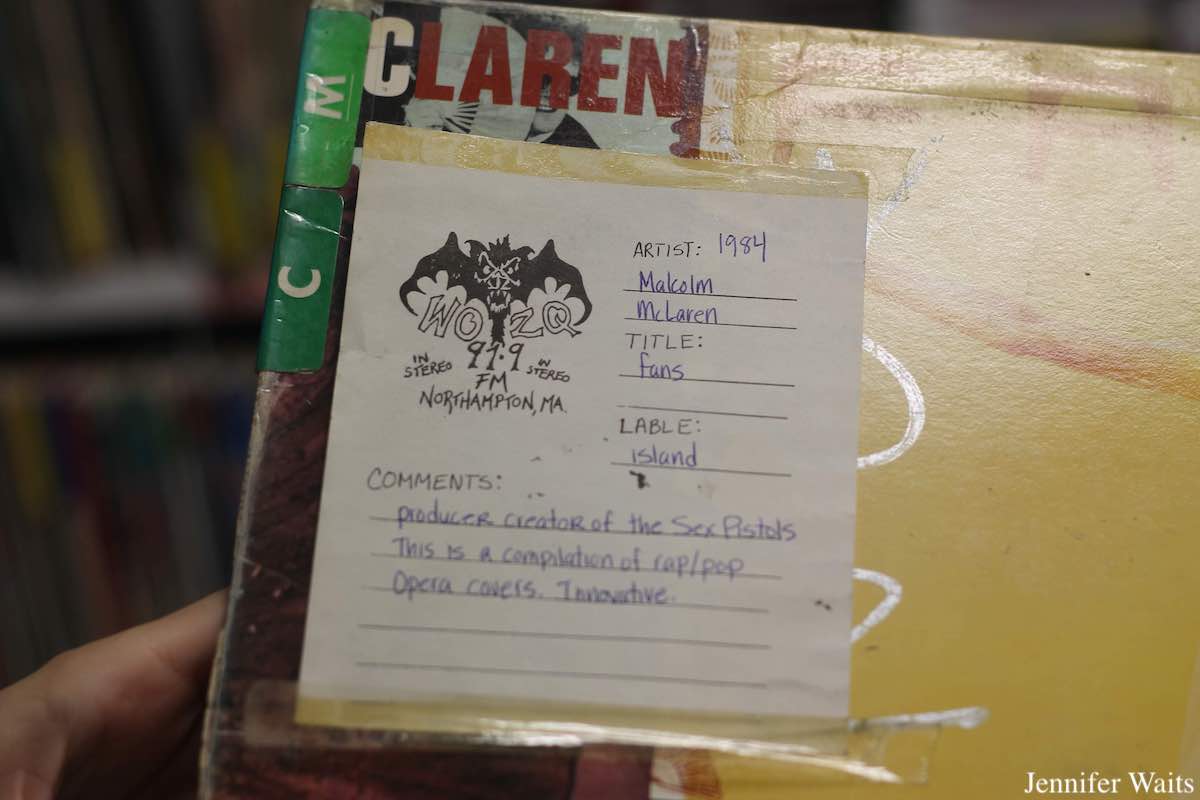 McLAREN
M
C
WOZQ
91.9
IN STEREO
IN STEREO
FM
NORTHAMPTON, MA.
ARTIST: 1984
Malcolm
McLaren
TITLE:
fans
LABLE:
island
COMMENTS:
producer creator of the Sex Pistols
This is a compilation of rap/pop
Opera covers. Innovative.
Jennifer Waits